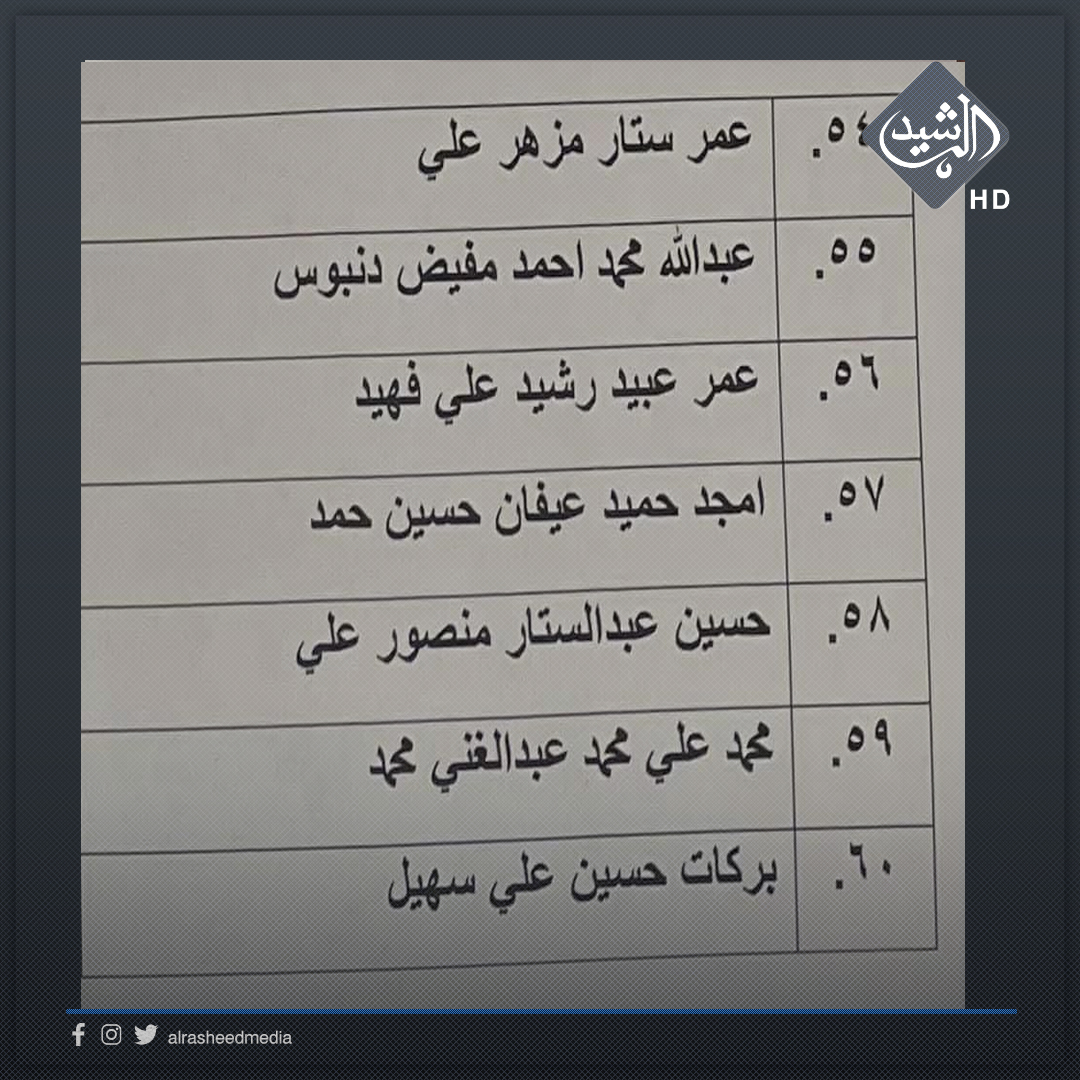 الرشيد
HD
٥٤. عمر ستار مزهر علي
٥٥. عبدالله محمد احمد مفيض دنبوس
٥٦. عمر عبيد رشيد علي فهيد
٥٧. امجد حميد عيفان حسين حمد
٥٨. حسين عبدالستار منصور علي
٥٩. محمد علي محمد عبدالغني محمد
٦٠. بركات حسين علي سهيل
alrasheedmedia